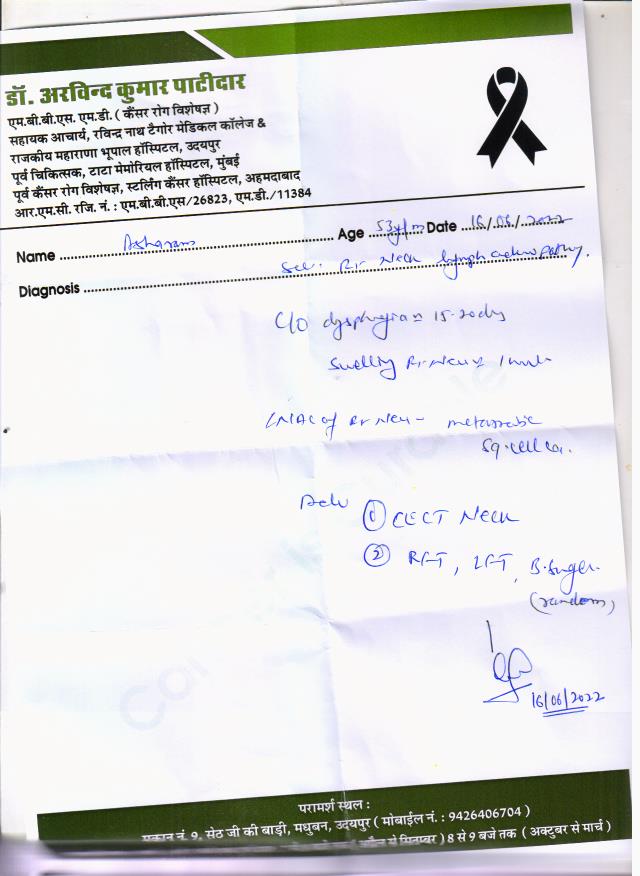 डॉ. अरविन्द कुमार पाटीदार
एम.बी.बी.एस. एम.डी. ( कैंसर रोग विशेषज्ञ )
सहायक आचार्य, रविन्द्र नाथ टैगोर मेडिकल कॉलेज &
राजकीय महाराणा भूपाल हॉस्पिटल, उदयपुर
पूर्व चिकित्सक, टाटा मेमोरियल हॉस्पिटल, मुंबई
पूर्व कैंसर रोग विशेषज्ञ, स्टर्लिंग कैंसर हॉस्पिटल, अहमदाबाद
आर.एम.सी. रजि. नं. : एम.बी.बी.एस/26823, एम.डी./11384
Name Asharam Age 53y/m Date 16/06/2022
Diagnosis Sec. Rt Neck lymphadenopathy.
C/O dysphagia 15-20 days
Swelling Rt Neck 1
FNAC of Rt Neck - metastatic
Sq. cell ca.
Adv ① CECT Neck
② RFT, LFT, B. Sugar.
(random)
16/06/2022
परामर्श स्थल :
मकान नं. 9, सेठ जी की बाड़ी, मधुबन, उदयपुर ( मोबाईल नं. : 9426406704 )
से सितम्बर ) 8 से 9 बजे तक ( अक्टुबर से मार्च )